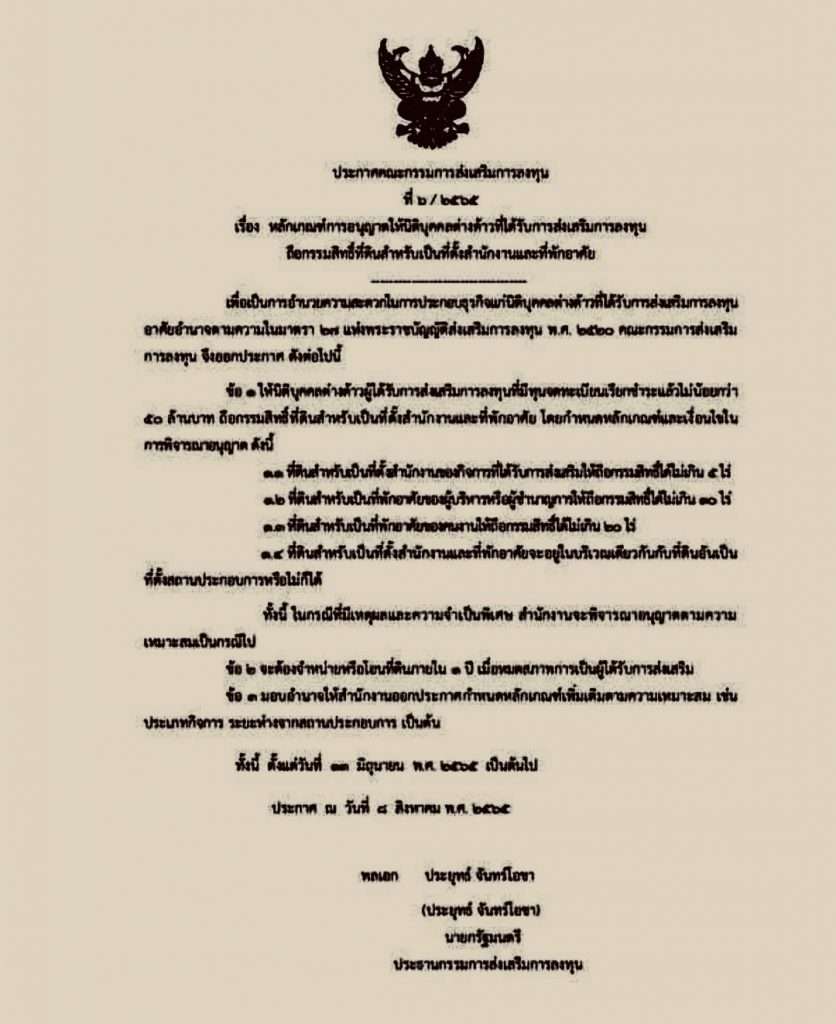 ประกาศคณะกรรมการส่งเสริมการลงทุน
ที่ ๖ / ๒๕๖๕
เรื่อง หลักเกณฑ์การอนุญาตให้นิติบุคคลต่างด้าวที่ได้รับการส่งเสริมการลงทุน
ถือกรรมสิทธิ์ที่ดินสำหรับเป็นที่ตั้งสำนักงานและที่พักอาศัย
--------------------------------
เพื่อเป็นการอำนวยความสะดวกในการประกอบธุรกิจแก่นิติบุคคลต่างด้าวที่ได้รับการส่งเสริมการลงทุน
อาศัยอำนาจตามความในมาตรา ๒๗ แห่งพระราชบัญญัติส่งเสริมการลงทุน พ.ศ. ๒๕๒๐ คณะกรรมการส่งเสริม
การลงทุน จึงออกประกาศ ดังต่อไปนี้
ข้อ ๑ ให้นิติบุคคลต่างด้าวผู้ได้รับการส่งเสริมการลงทุนที่มีทุนจดทะเบียนเรียกชำระแล้วไม่น้อยกว่า
๕๐ ล้านบาท ถือกรรมสิทธิ์ที่ดินสำหรับเป็นที่ตั้งสำนักงานและที่พักอาศัย โดยกำหนดหลักเกณฑ์และเงื่อนไขใน
การพิจารณาอนุญาต ดังนี้
๑.๑ ที่ดินสำหรับเป็นที่ตั้งสำนักงานของกิจการที่ได้รับการส่งเสริมให้ถือกรรมสิทธิ์ได้ไม่เกิน ๕ ไร่
๑.๒ ที่ดินสำหรับเป็นที่พักอาศัยของผู้บริหารหรือผู้ชำนาญการให้ถือกรรมสิทธิ์ได้ไม่เกิน ๑๐ ไร่
๑.๓ ที่ดินสำหรับเป็นที่พักอาศัยของคนงานให้ถือกรรมสิทธิ์ได้ไม่เกิน ๒๐ ไร่
๑.๔ ที่ดินสำหรับเป็นที่ตั้งสำนักงานและที่พักอาศัยจะอยู่ในบริเวณเดียวกันกับที่ดินอันเป็น
ที่ตั้งสถานประกอบการหรือไม่ก็ได้
ทั้งนี้ ในกรณีที่มีเหตุผลและความจำเป็นพิเศษ สำนักงานจะพิจารณาอนุญาตตามความ
เหมาะสมเป็นกรณีไป
ข้อ ๒ จะต้องจำหน่ายหรือโอนที่ดินภายใน ๑ ปี เมื่อหมดสภาพการเป็นผู้ได้รับการส่งเสริม
ข้อ ๓ มอบอำนาจให้สำนักงานออกประกาศกำหนดหลักเกณฑ์เพิ่มเติมตามความเหมาะสม เช่น
ประเภทกิจการ ระยะห่างจากสถานประกอบการ เป็นต้น
ทั้งนี้ ตั้งแต่วันที่ ๑๓ มิถุนายน พ.ศ. ๒๕๖๕ เป็นต้นไป
ประกาศ ณ วันที่ ๘ สิงหาคม พ.ศ. ๒๕๖๕
พลเอก ประยุทธ์ จันทร์โอชา
(ประยุทธ์ จันทร์โอชา)
นายกรัฐมนตรี
ประธานกรรมการส่งเสริมการลงทุน